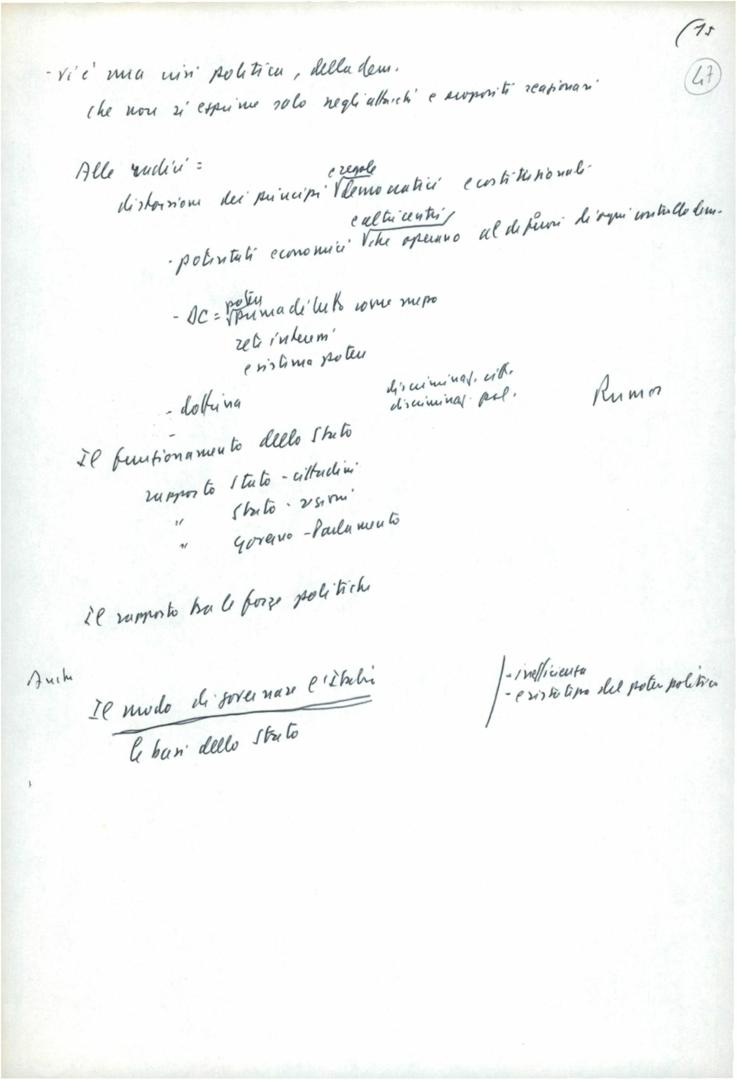 (15
47
- vi è una crisi politica, della dem.
che non si esprime solo negli attacchi e propositi reazionari
Alle radici =
e regole
distorsione dei principi democratici e costituzionali
e altri centri
- potentati economici che operano al di fuori di ogni controllo dem.
poteri
- DC = prima di tutto come
e sistema potere
- dottrina
discriminaz. citt.
discriminaz. pol.
Rumor
-
Il funzionamento dello Stato
rapporto Stato - cittadini
" Stato - regioni
" Governo - Parlamento
Il rapporto tra le forze politiche
Anche
Il modo di governare l'Italia
- inefficienza
- del poter politico
le basi dello Stato